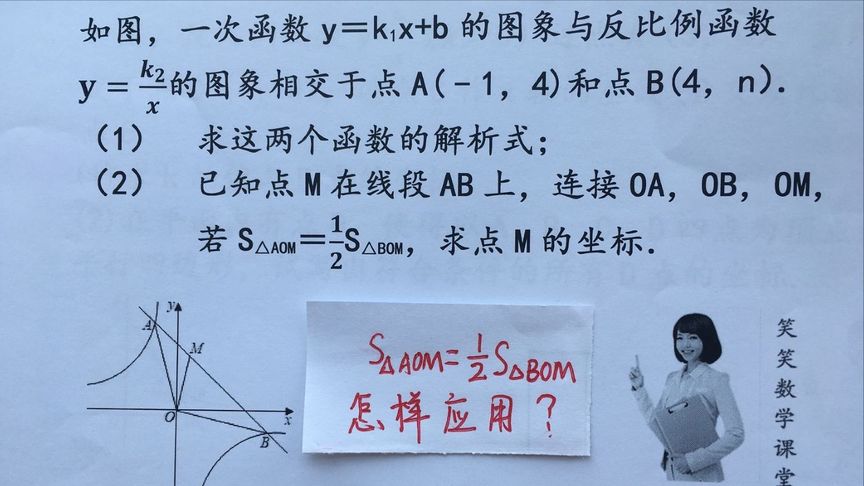 如图，一次函数 y＝k₁x+b 的图象与反比例函数
y = k₂/x 的图象相交于点 A(-1，4)和点 B(4，n)．
(1) 求这两个函数的解析式；
(2) 已知点 M 在线段 AB 上，连接 OA，OB，OM，
若 S△AOM＝1/2S△BOM，求点 M 的坐标．
y
A
M
O
x
B
S△AOM=1/2S△BOM
怎样应用？
笑笑数学课堂